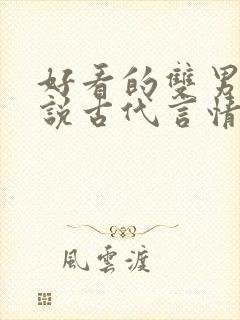 好看的雙男
說古代言情
風雲渡